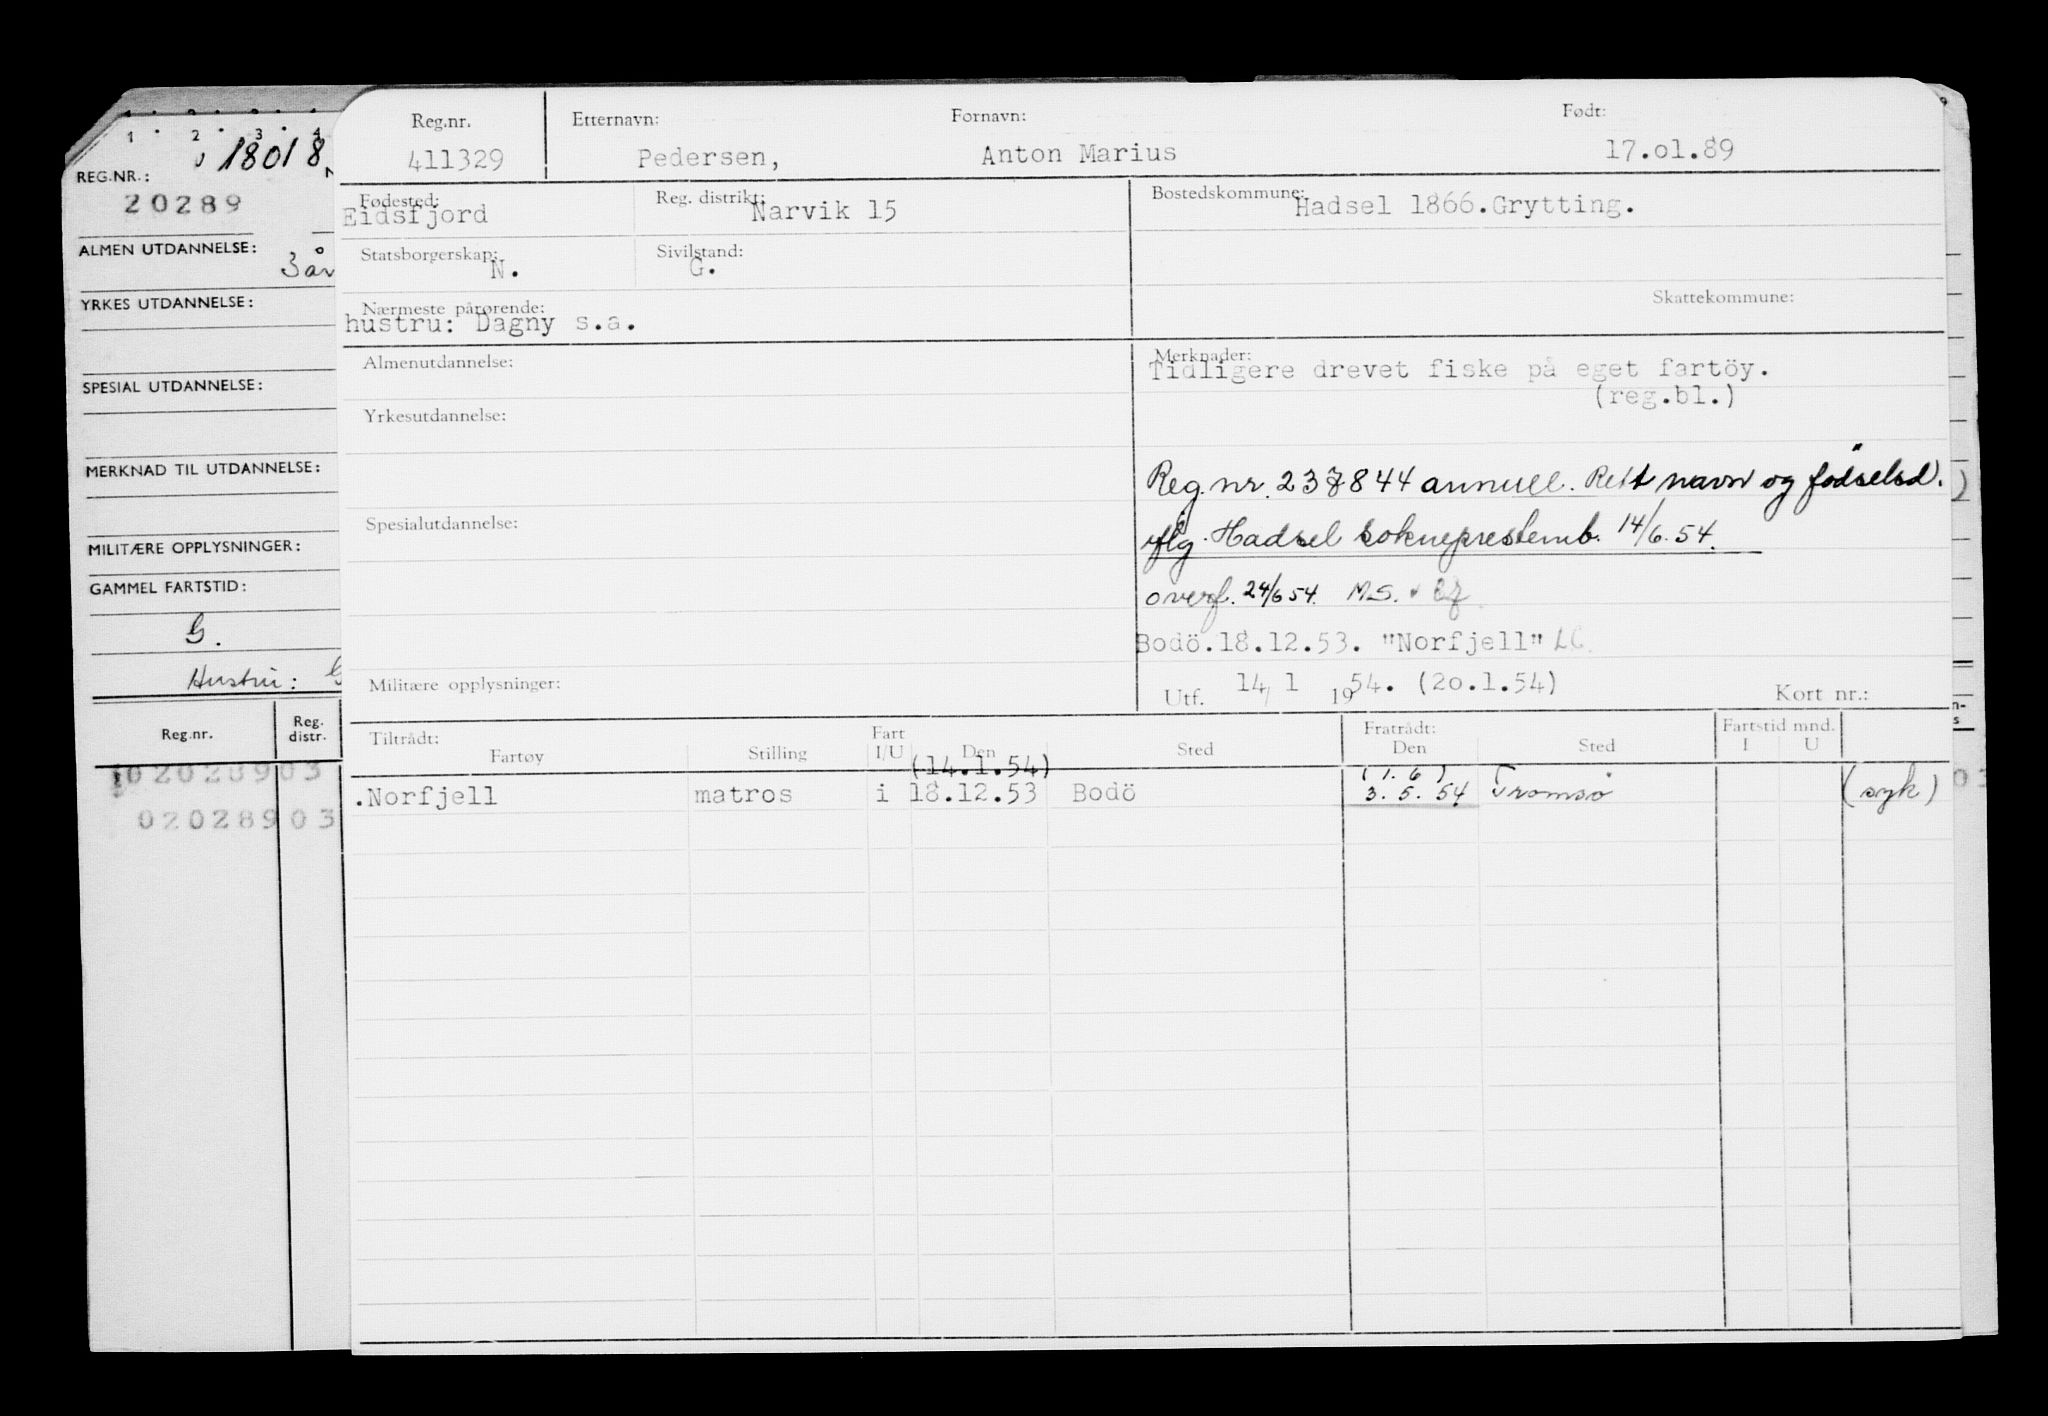 1 2 3 4
18018
REG.NR.:
20289
ALMEN UTDANNELSE:
3 år
YRKES UTDANNELSE:
SPESIAL UTDANNELSE:
MERKNAD TIL UTDANNELSE:
MILITÆRE OPPLYSNINGER:
GAMMEL FARTSTID:
G.
Hustru: G
Reg.nr. Reg. distr.
02028903
02028903
Reg.nr. Etternavn: Fornavn: Født:
411329 Pedersen, Anton Marius 17.01.89
Fødested: Reg. distrikt: Bostedskommune:
Eidsfjord Narvik 15 Hadsel 1866.Grytting.
Statsborgerskap: Sivilstand:
N. G.
Nærmeste pårørende: Skattekommune:
hustru: Dagny s.a.
Almenutdannelse: Merknader:
Tidligere drevet fiske på eget fartöy.
(reg.bl.)
Yrkesutdannelse:
Reg.nr. 237844 annull. Rett navn og fødselsd.
iflg. Hadsel sokneprestemb. 14/6.54.
Spesialutdannelse:
overf. 24/6 54. M.S.
Bodö.18.12.53. "Norfjell" LC.
Militære opplysninger:
Utf. 14/1 1954. (20.1.54) Kort nr.:
Tiltrådt: Fart Fratrådt: Fartstid mnd.
Fartøy Stilling I/U Den Sted Den Sted I U
(14.1.54) (1.6)
.Norfjell matros i 18.12.53 Bodö 3.5.54 Tromsø (syk)